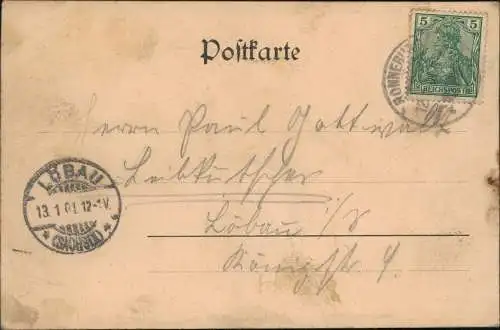 5 5
REICHSPOST
RONNEBU
Postkarte
Herrn Paul Gottwalt
Leibkutscher
LÖBAU
13. 1. 01. 12-1V.
(SACHSEN)
Löbau i/S
Königstr. 4